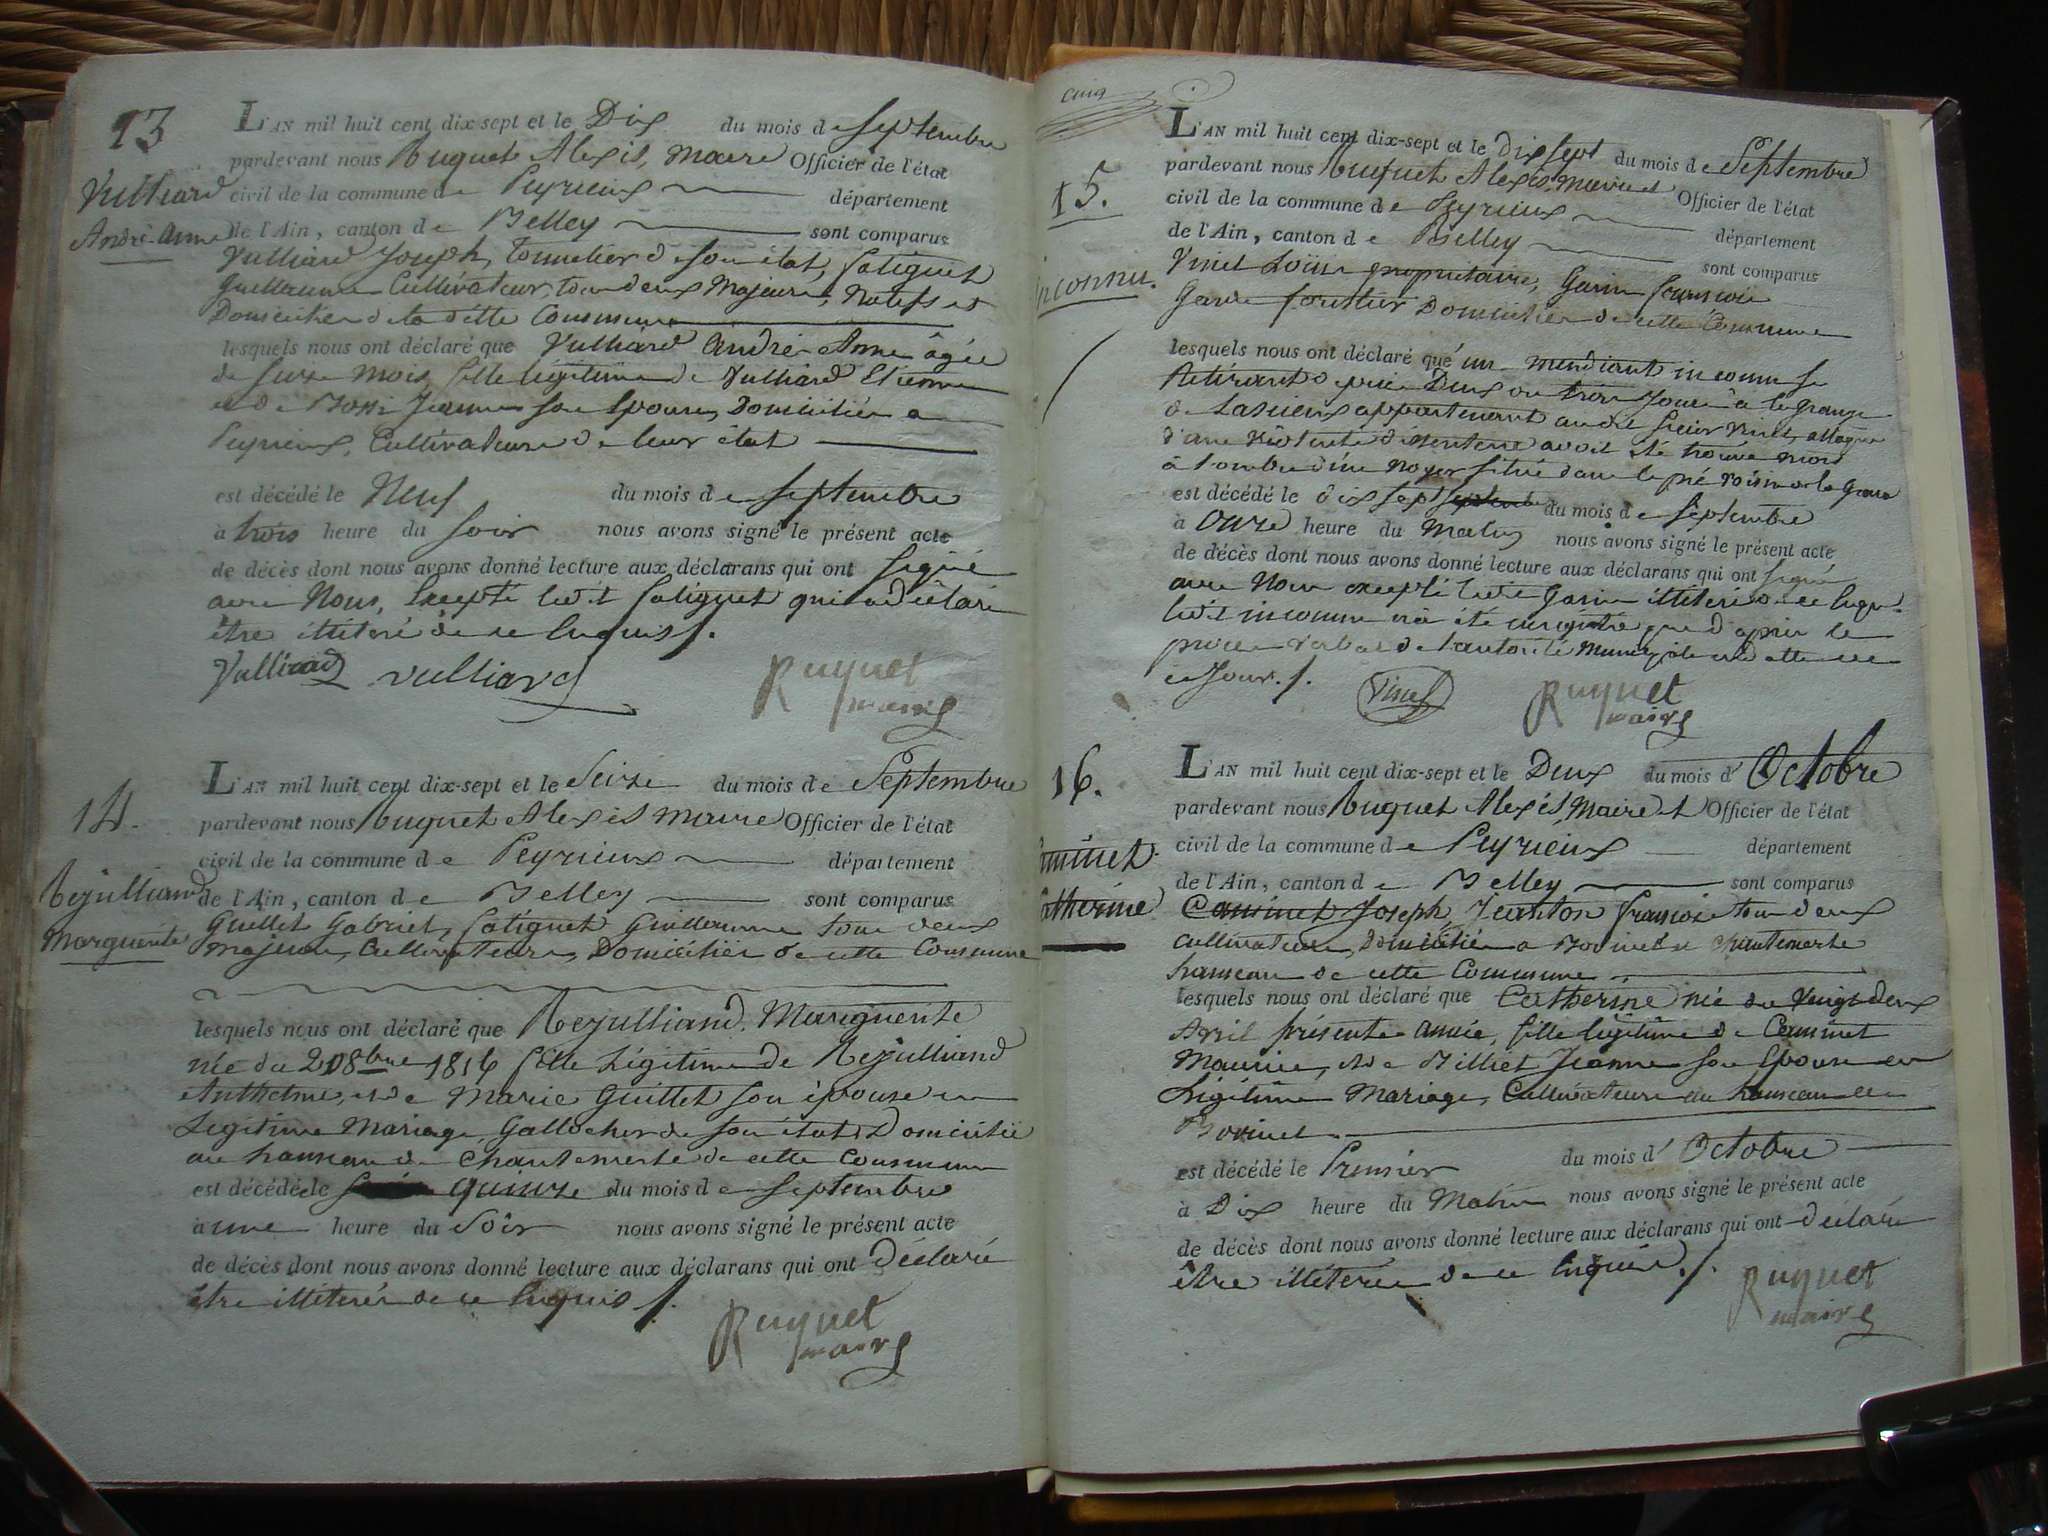 13
L'AN mil huit cent dix sept et le Dix du mois de Septembre
pardevant nous Ruquet Alexis, Maire Officier de l'état
civil de la commune de Peyrieux département
de l'Ain, canton de Belley sont comparus
Vulliard
André-Anne
Vulliard Joseph, Tonnelier de son état, Satignet
Guillaume Cultivateur, tous deux Majeurs, Natifs et
Domiciliés de la ditte Commune
lesquels nous ont déclaré que Vulliard André-Anne âgée
de seize mois, fille légitime de Vulliard Etienne
et de Jeanne son Epouse, Domiciliés a
Peyrieux, Cultivateurs de leur état
est décédé le Neuf du mois de Septembre
à trois heure du Soir nous avons signé le présent acte
de décès dont nous avons donné lecture aux déclarans qui ont signé
avec Nous, Excepté ledit Satignet qui a déclaré
être illiteré de ce Enquis ./.
Vulliard vulliard Ruquet
maire
14.
L'AN mil huit cent dix-sept et le Seize du mois de Septembre
pardevant nous Ruquet Alexis Maire Officier de l'état
civil de la commune de Peyrieux département
de l'Ain, canton de Belley sont comparus
Rejulliand
Marguerite
Guillet Gabriel, Satignet Guillaume tous deux
majeurs, Cultivateurs, Domiciliés de cette Commune
lesquels nous ont déclaré que Rejulliand Marguerite
née du 2 8bre 1816 fille Légitime de Rejulliand
Anthelme, et de Marie Guillet son épouse en
Légitime Mariage, Gallocher de son état, Domicilié
au hameau de Chantemerle de cette Commune
est décédé le quinze du mois de Septembre
à une heure du Soir nous avons signé le présent acte
de décès dont nous avons donné lecture aux déclarans qui ont Déclaré
être illiterés de ce Enquis ./.
Ruquet
maire
cinq
15.
L'AN mil huit cent dix-sept et le Dix sept du mois de Septembre
pardevant nous Ruquet Alexis, Maire et Officier de l'état
civil de la commune de Peyrieux département
de l'Ain, canton de Belley sont comparus
inconnu.
Vinet Loüis propriétaire, Garin François
Garde forestier Domiciliés de cette Commune
lesquels nous ont déclaré qu'un mendiant inconnu se
Retirant depuis Deux ou trois jours à la grange
de appartenant audit Sieur Vinet, attaqué
d'une violente avoit été trouvé mort
à l'ombre d'un Noyer situé dans le pré voisin de la Grange
est décédé le dix sept du mois de Septembre
à Onze heure du Matin nous avons signé le présent acte
de décès dont nous avons donné lecture aux déclarans qui ont signé
avec Nous excepté ledit Garin illiteré de ce Enquis
ledit inconnu n'a été enregistré que d'après le
procès verbal de l'autorité Municipale en datte de
ce Jour. /. Vinet Ruquet
maire
16.
L'AN mil huit cent dix-sept et le Deux du mois d'Octobre
pardevant nous Ruquet Alexis, Maire et Officier de l'état
civil de la commune de Peyrieux département
de l'Ain, canton de Belley sont comparus
Catherine
Caminet Joseph, Jeanton François tous deux
Cultivateurs, Domiciliés a Bovinet et Chantemerle
hameau de cette Commune
lesquels nous ont déclaré que Catherine née du Vingt deux
Avril présente année, fille légitime de Caminet
Maurice, et de Milliet Jeanne son Epouse en
Légitime Mariage, Cultivateurs au hameau de
Bovinet
est décédé le Premier du mois d'Octobre
à Dix heure du Matin nous avons signé le présent acte
de décès dont nous avons donné lecture aux déclarans qui ont déclaré
être illiterés de ce Enquis ./.
Ruquet
maire